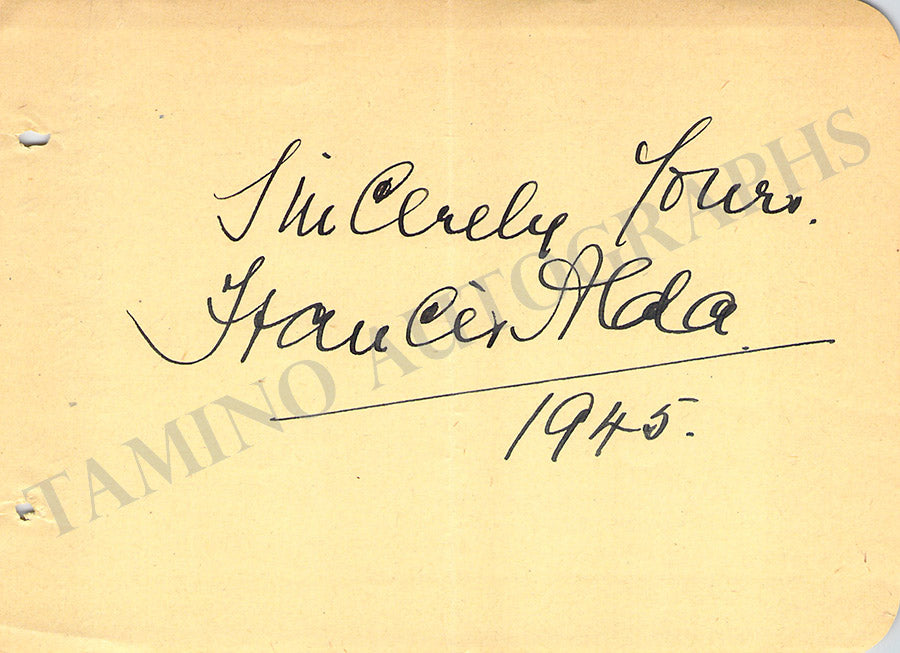 Sincerely Yours.
Frances Alda.
1945.
TAMINO AUTOGRAPHS